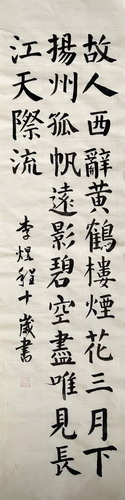 故人西辭黃鶴樓煙花三月下
揚州孤帆遠影碧空盡唯見長
江天際流
李煜程十歲書